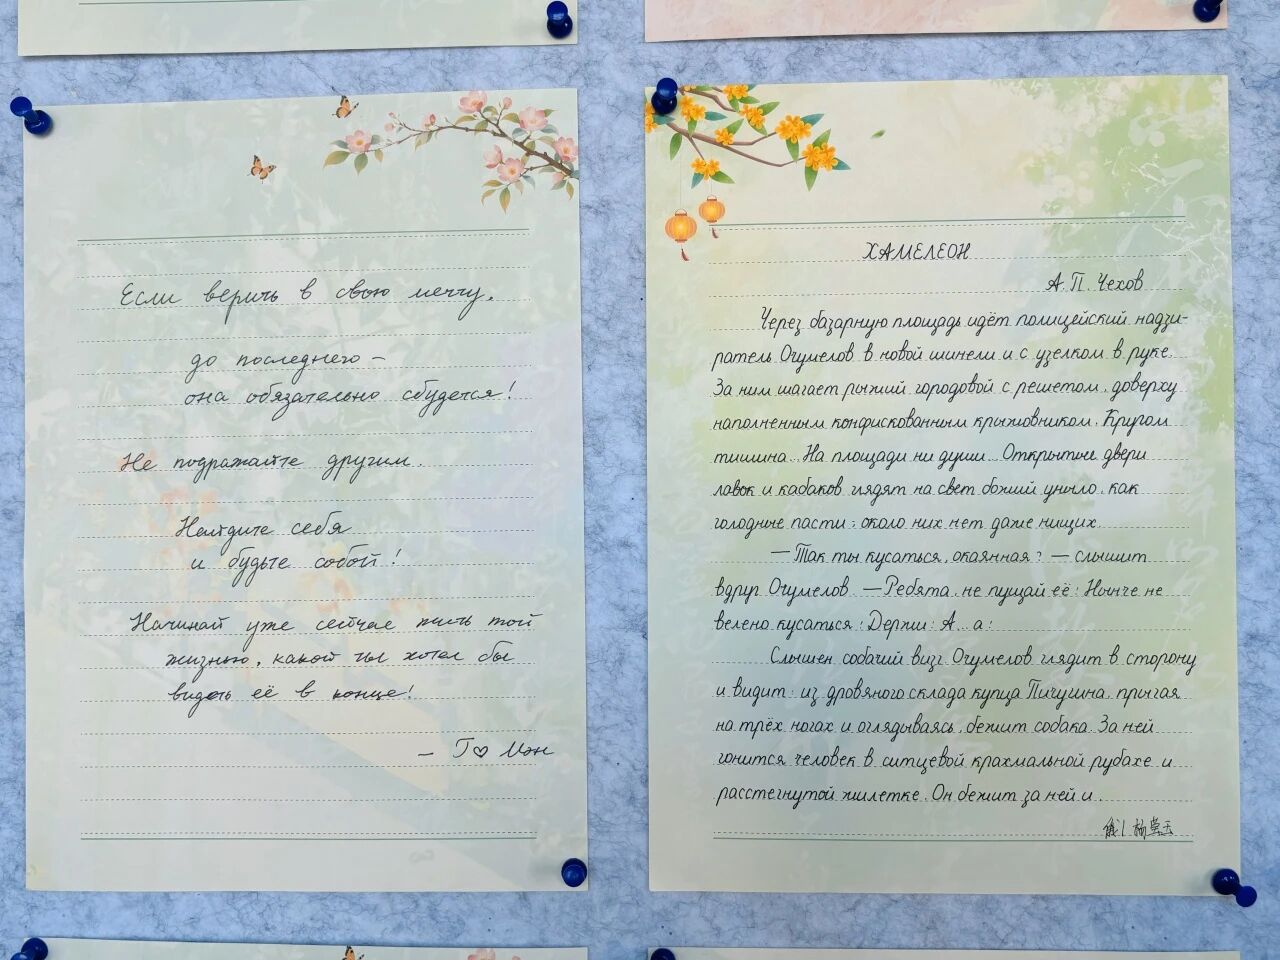 Если верить в свою мечту,
до последнего –
она обязательно сбудется!
Не подражайте другим.
Найдите себя
и будьте собой!
Начинай уже сейчас жить той
жизнью, какой ты хотел бы
видеть её в конце!
– Го Мэн
ХАМЕЛЕОН
А. П. Чехов
Через базарную площадь идёт полицейский надзи-
ратель Очумелов в новой шинели и с узелком в руке.
За ним шагает рыжий городовой с решетом, доверху
наполненным конфискованным крыжовником. Кругом
тишина... На площади ни души... Открытые двери
лавок и кабаков глядят на свет божий уныло, как
голодные пасти; около них нет даже нищих.
— Так ты кусаться, окаянная? — слышит
вдруг Очумелов. — Ребята, не пущай её! Нынче не
велено кусаться! Держи! А...а!
Слышен собачий визг. Очумелов глядит в сторону
и видит: из дровяного склада купца Пичугина, прыгая
на трёх ногах и оглядываясь, бежит собака. За ней
гонится человек в ситцевой крахмальной рубахе и
расстегнутой жилетке. Он бежит за ней и.
俄1 杨